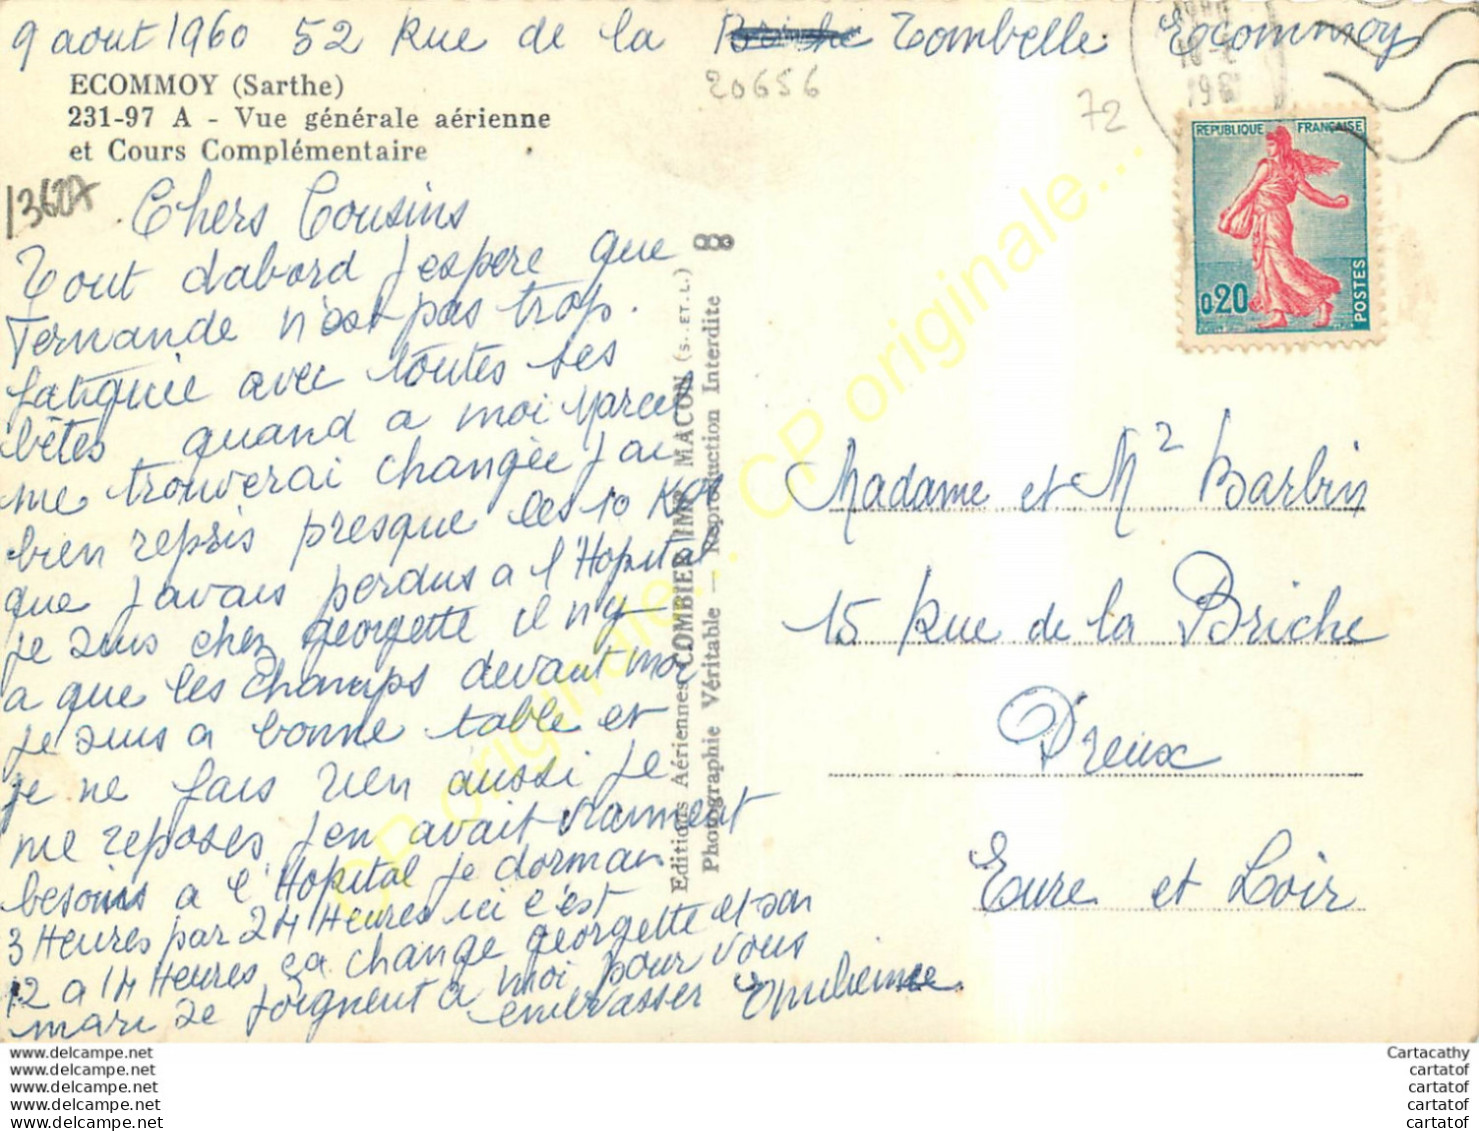 9 aout 1960 52 Rue de la Briche Tombelle Ecommoy
ECOMMOY (Sarthe)
231-97 A - Vue générale aérienne
et Cours Complémentaire
20656
72
1960
REPUBLIQUE FRANÇAISE
0,20
POSTES
Chers Cousins
Tout dabord j'espere que
Fernande n'est pas trop
fatiguée avec toutes ses
bêtes quand a moi Marcel
me trouverai changée j'ai
bien repris presque les 10 Kgs
que j'avais perdus a l'Hopital
je suis chez georgette il n'y
a que les champs devant moi
je suis a bonne table et
je ne fais rien aussi je
me reposes j'en avait vraiment
besoins a l'Hopital je dormais
3 Heures par 24 Heures ici c'est
12 a 14 Heures ça change georgette et son
mari se joignent a moi pour vous
embrasser Emilienne
Editions Aériennes COMBIER IMP. MACON (S.-ET-L.)
Photographie Véritable — Reproduction Interdite
CP originale... CP originale...
Madame et Mr Barbin
15 Rue de la Briche
Dreux
Eure et Loir
www.delcampe.net
www.delcampe.net
www.delcampe.net
www.delcampe.net
www.delcampe.net
Cartacathy
cartatof
cartatof
cartatof
cartatof